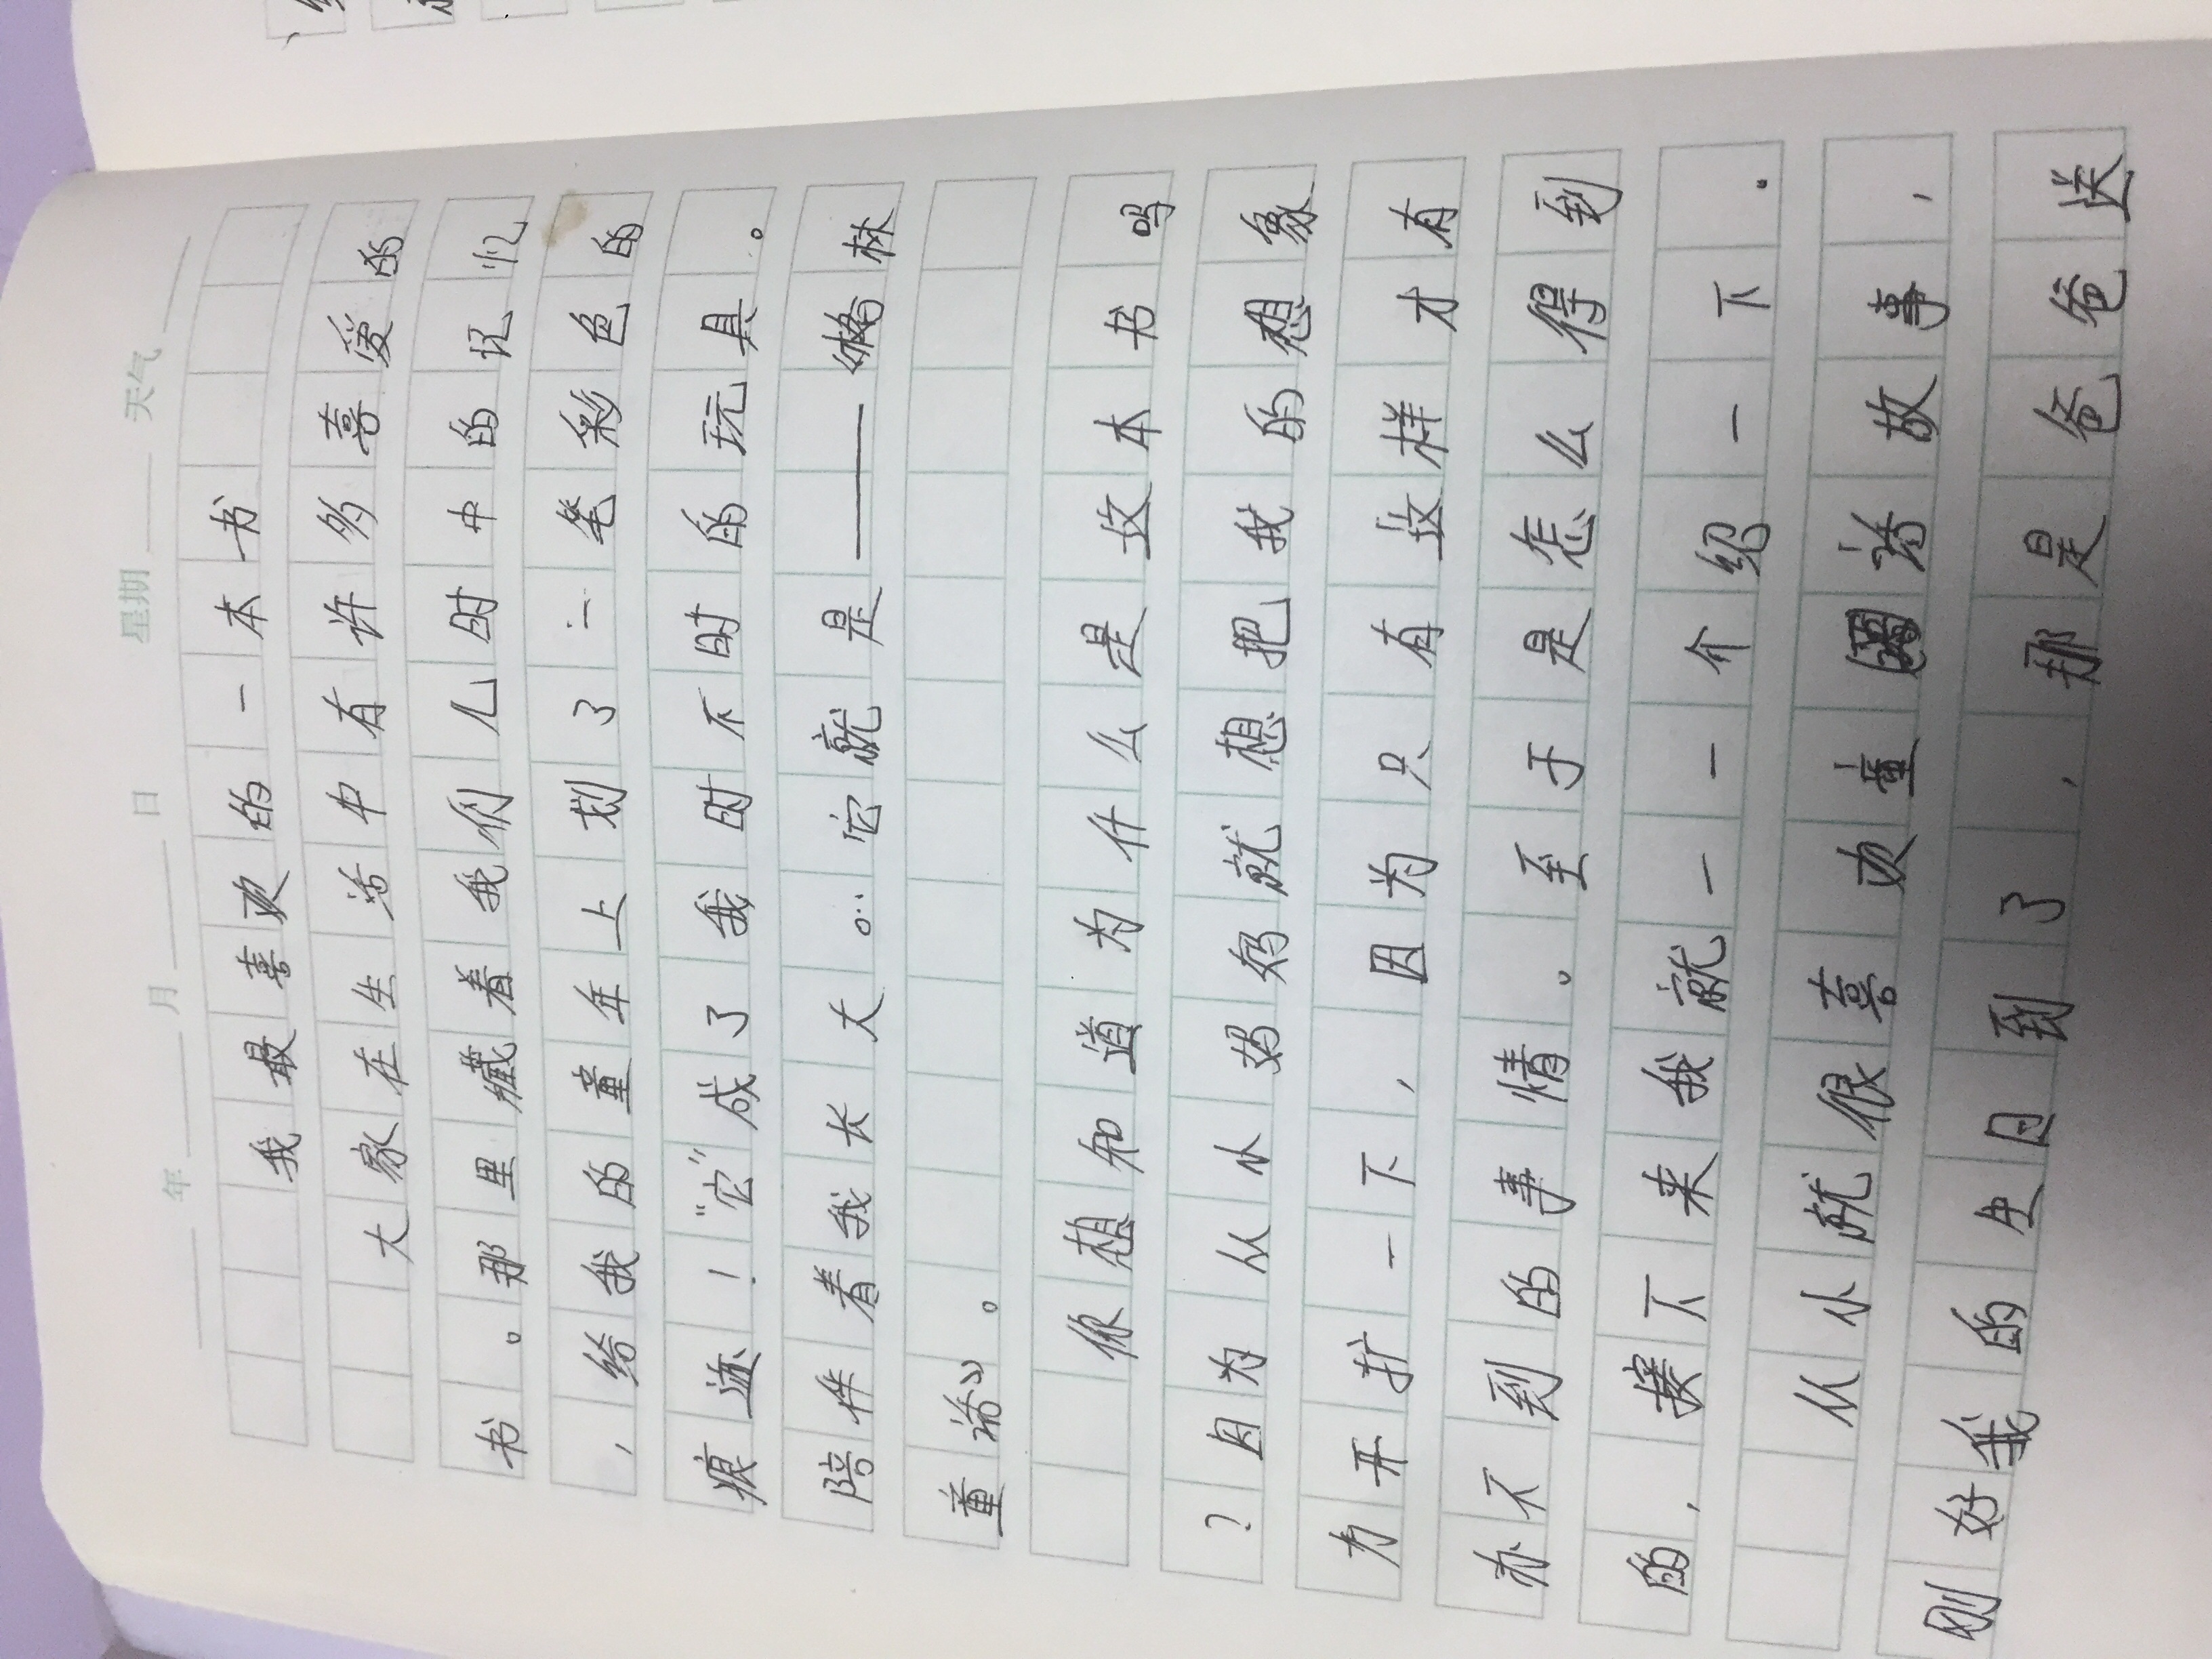 年 月 日 星期 天气
我最喜欢的一本书
大家在生活中有许多喜爱的
书。那里藏着我们儿时中的记忆
,给我的童年上划了一笔彩色的
痕迹!“它”成了我时不时的玩具。
陪伴着我长大。…它就是——《格林
童话》。
你想知道为什么是这本书吗
?因为从从妈妈就想把我的想象
力开扩一下,因为只有这样才有
办不到的事情。至于是怎么得到
的,接下来我就一一介绍一下.
从小就很喜欢童话故事,
刚好我的生日到了,那是爸爸送